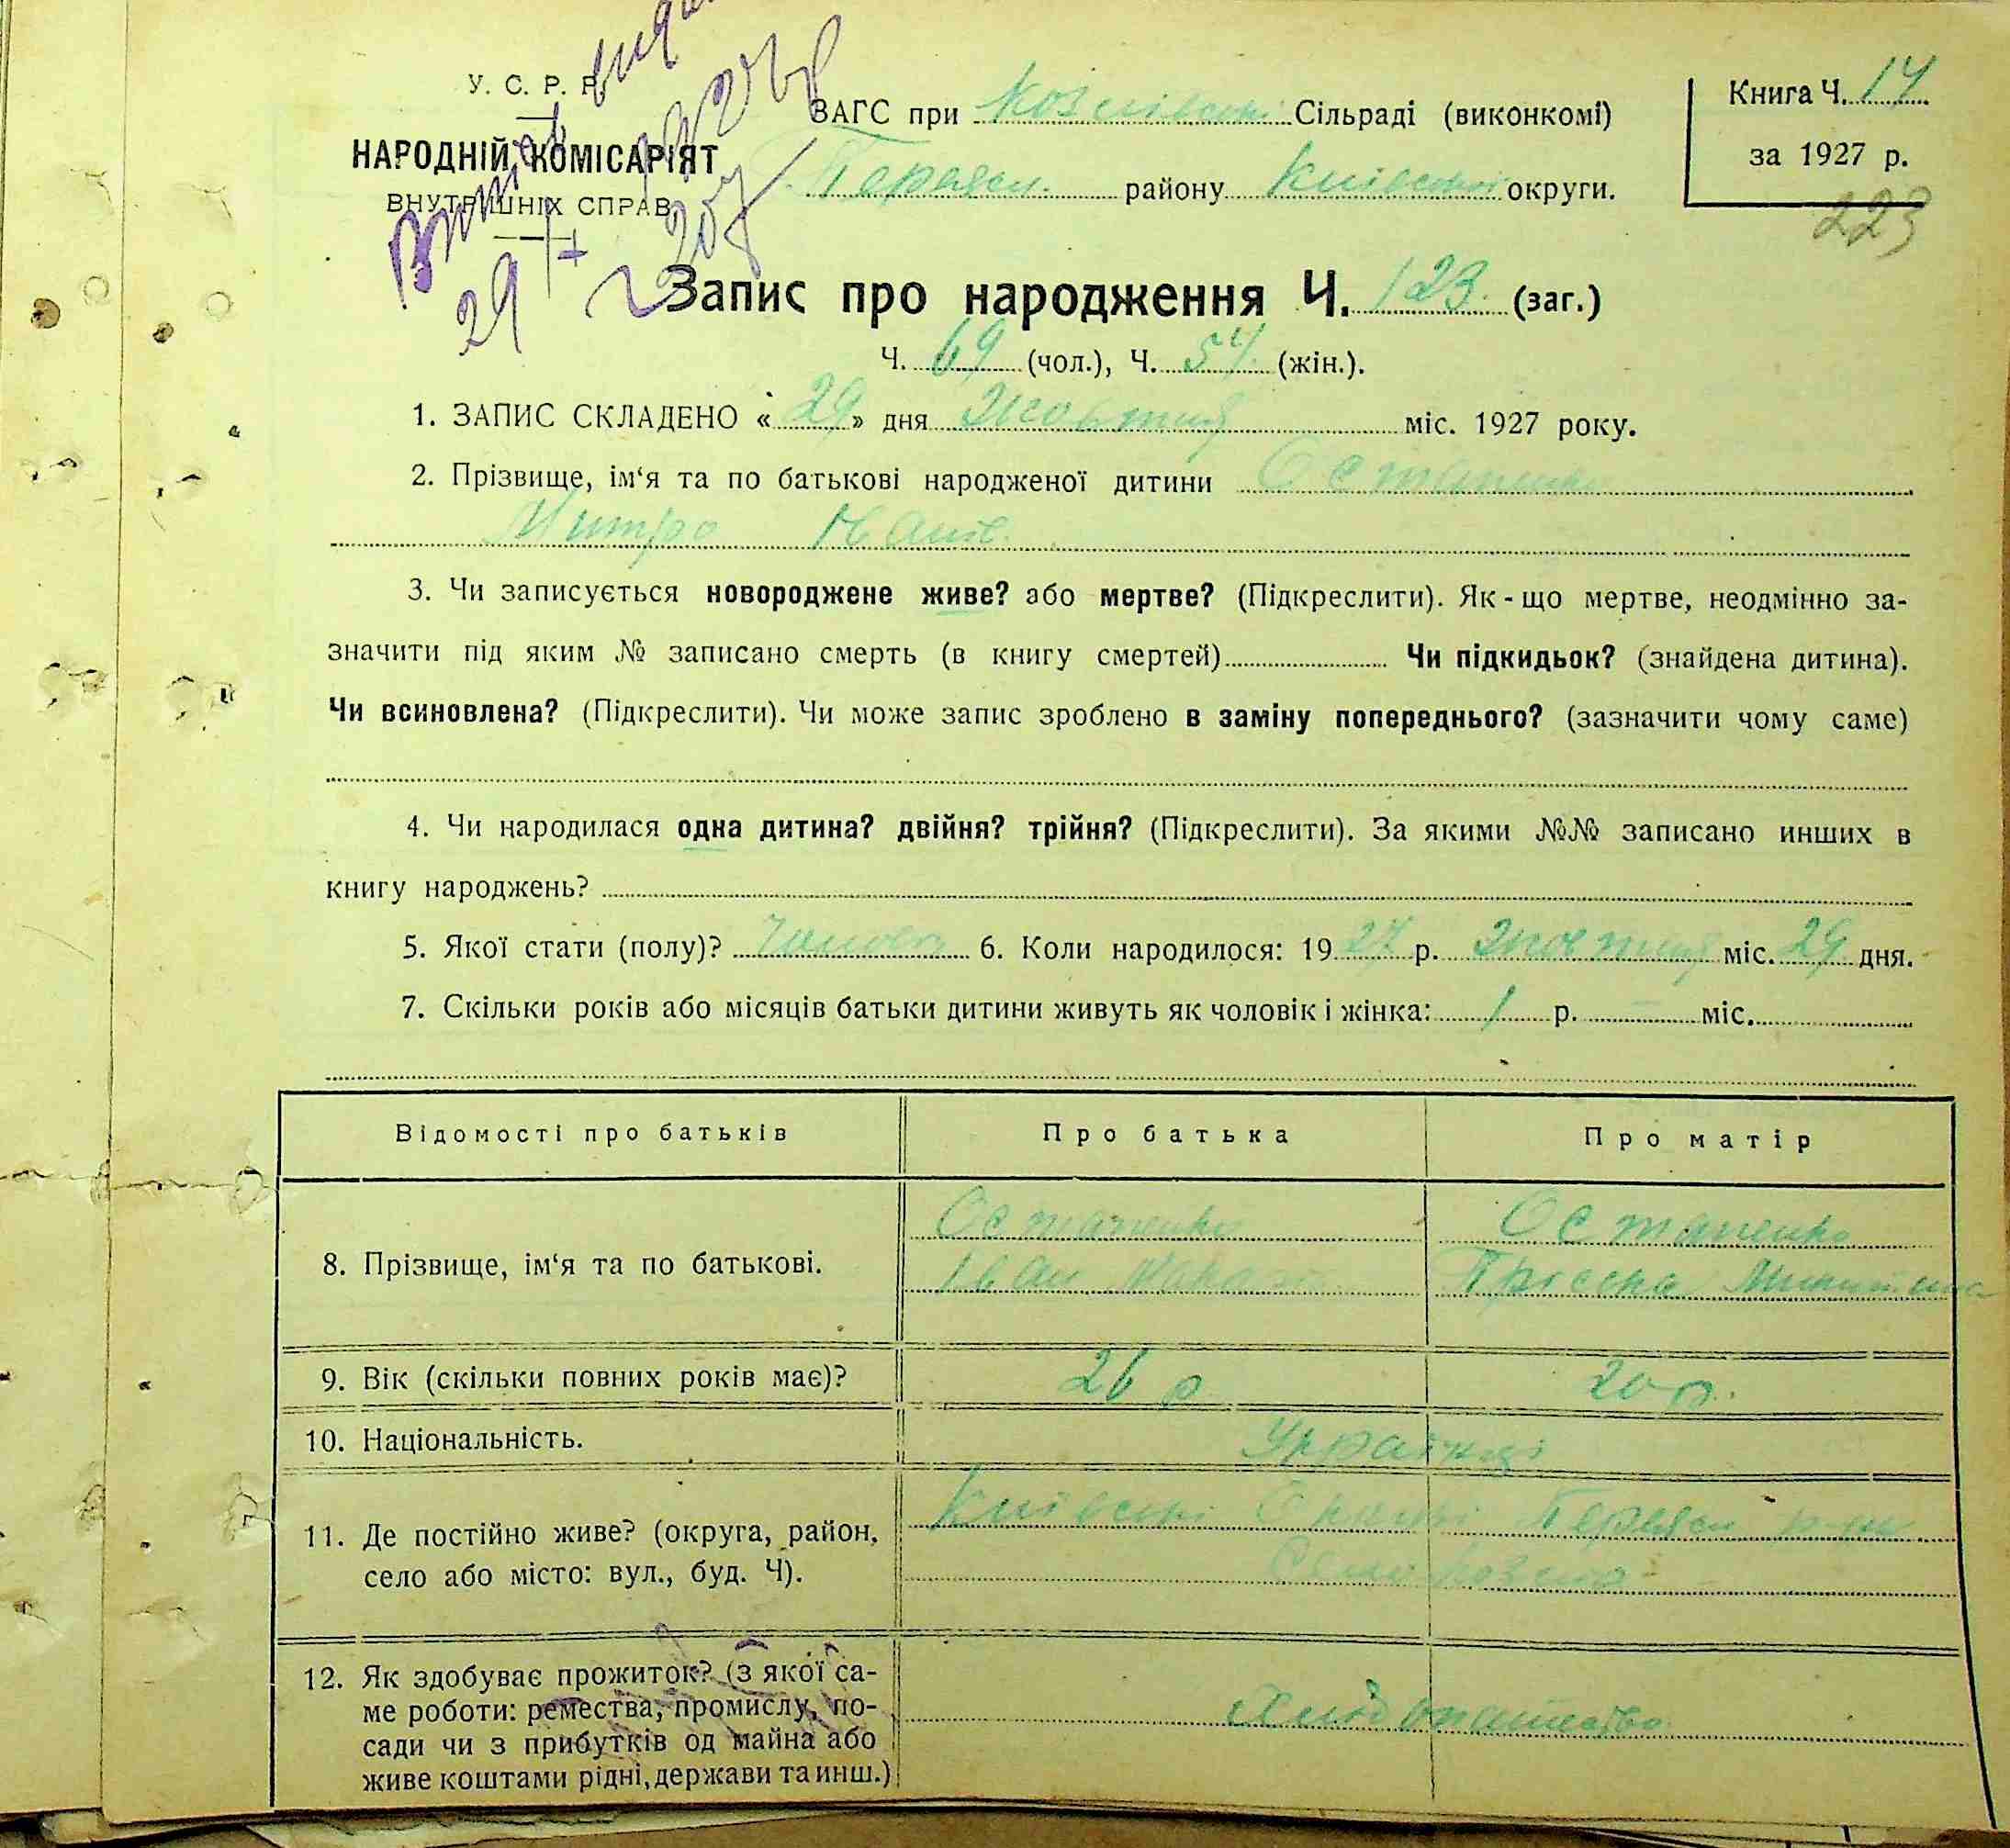 У. С. Р. Р.
НАРОДНІЙ КОМІСАРІЯТ
ВНУТРІШНІХ СПРАВ
ЗАГС при Козлівські Сільраді (виконкомі)
Переясл. району Київської округи.
Книга Ч. 14
за 1927 р.
223
29
Запис про народження Ч. 123 (заг.)
Ч. 69 (чол.), Ч. 54 (жін.).
1. ЗАПИС СКЛАДЕНО «29» дня Жовтня міс. 1927 року.
2. Прізвище, ім‘я та по батькові народженої дитини Остапенко
Митро Іван.
3. Чи записується новороджене живе? або мертве? (Підкреслити). Як-що мертве, неодмінно за-
значити під яким № записано смерть (в книгу смертей) Чи підкидьок? (знайдена дитина).
Чи всиновлена? (Підкреслити). Чи може запис зроблено в заміну попереднього? (зазначити чому саме)
4. Чи народилася одна дитина? двійня? трійня? (Підкреслити). За якими №№ записано инших в
книгу народжень?
5. Якої стати (полу)? Чоловіч 6. Коли народилося: 1927 р. Жовтня міс. 29 дня.
7. Скільки років або місяців батьки дитини живуть як чоловік і жінка: 1 р. — міс.
Відомості про батьків Про батька Про матір
8. Прізвище, ім‘я та по батькові.
Остапенко
Іван
Остапенко
9. Вік (скільки повних років має)? 26 р 20 р.
10. Національність. Українці
11. Де постійно живе? (округа, район,
село або місто: вул., буд. Ч).
Київські Окрузі Переясл р-ну
Село Козлів
12. Як здобуває прожиток? (з якої са-
ме роботи: ремества, промислу, по-
сади чи з прибутків од майна або
живе коштами рідні, держави та инш.)
Хлібопашество